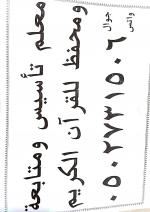 معلم تأسيس ومتابعة
ومحفظ للقرآن الكريم
جوال
واتس
٠٥٠٢٧٣١٥٠٦